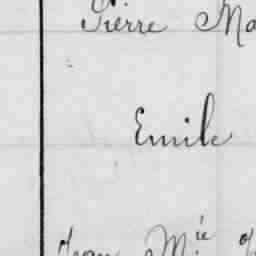 Pierre Ma
Emile
Jean M.ie